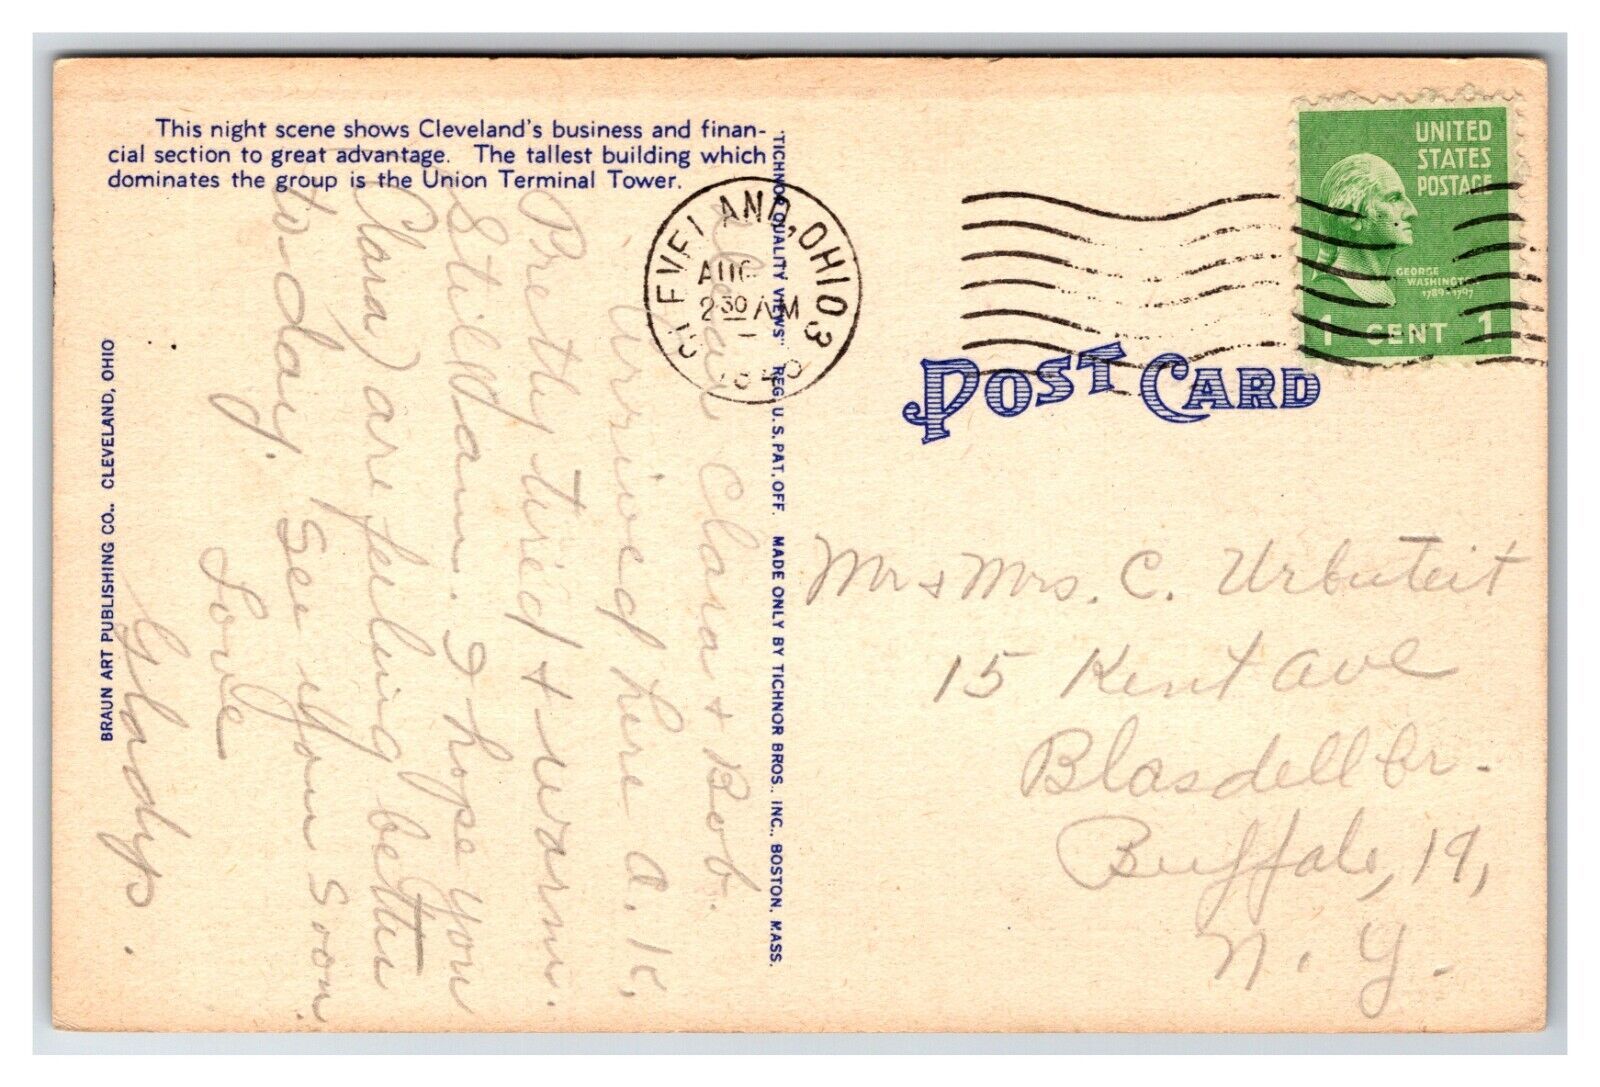 This night scene shows Cleveland's business and finan-
cial section to great advantage. The tallest building which
dominates the group is the Union Terminal Tower.
BRAUN ART PUBLISHING CO., CLEVELAND, OHIO
"TICHNOR QUALITY VIEWS" REG. U.S. PAT. OFF. MADE ONLY BY TICHNOR BROS., INC., BOSTON, MASS.
CLEVELAND, OHIO 3
AUG
2 30 AM
UNITED
STATES
POSTAGE
GEORGE
WASHINGTON
1789-1797
1 CENT 1
POST CARD
Dear Clara & Bob.
Arrived here O.K.
Pretty tired & warm.
Still Warm. I hope you
(Clara) are feeling better
to-day. See you soon.
Love
Gladys.
Mr & Mrs. C. Urbuteit
15 Kent Ave
Blasdell Br.
Buffalo, 19,
N. Y.